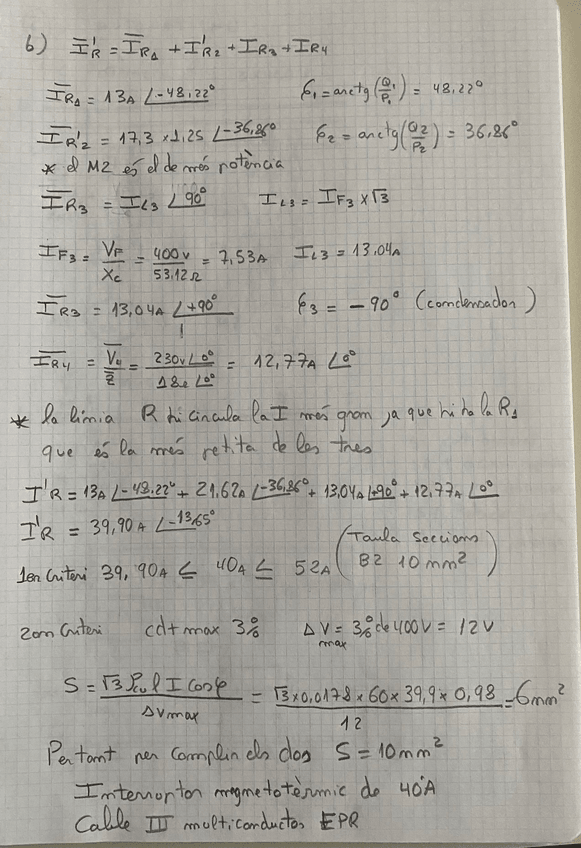 b) I̅'R = I̅R1 + I'R2 + IR3 + IR4
I̅R1 = 13A ∠-48,22° φ1 = arctg(Q1/P1) = 48,22°
I̅R'2 = 17,3 × 1,25 ∠-36,86° φ2 = arctg(Q2/P2) = 36,86°
* el M2 és el de més potència
I̅R3 = IL3 ∠90° IL3 = IF3 × √3
IF3 = VF/Xc = 400V/53,12Ω = 7,53A IL3 = 13,04A
I̅R3 = 13,04A ∠+90° φ3 = -90° (condensador)
I̅R4 = V̅/Z̅ = 230V∠0°/18Ω∠0° = 12,77A ∠0°
* la línia R hi circula la I més gran ja que hi ha la R1
que és la més petita de les tres
I'R = 13A ∠-48,22° + 21,62A ∠-36,86° + 13,04A ∠+90° + 12,77A ∠0°
I'R = 39,90A ∠-13,65°
1er Criteri 39,90A ≤ 40A ≤ 52A (Taula Seccions B2 10mm²)
2on Criteri cdt max 3% ΔV max = 3% de 400V = 12V
S = √3 ρcu l I cosφ / ΔVmax = √3 × 0,0178 × 60 × 39,9 × 0,98 / 12 = 6mm²
Pertant per complir els dos S = 10mm²
Interruptor magnetotèrmic de 40A
Cable III multiconductor EPR